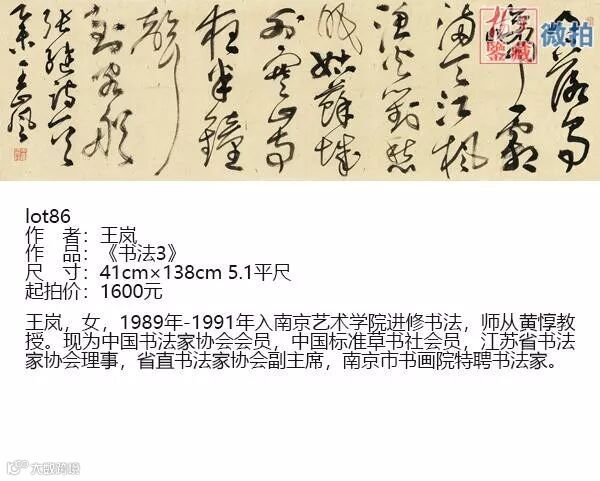 月落烏
啼霜
滿天江楓
漁火對愁
眠姑蘇城
外寒山寺
夜半鐘
聲
到客船
張繼詩一首
王嵐
鉴藏
微拍
lot86
作 者：王岚
作 品：《书法3》
尺 寸：41cm×138cm 5.1平尺
起拍价：1600元
王岚，女，1989年-1991年入南京艺术学院进修书法，师从黄惇教
授。现为中国书法家协会会员，中国标准草书社会员，江苏省书法
家协会理事，省直书法家协会副主席，南京市书画院特聘书法家。